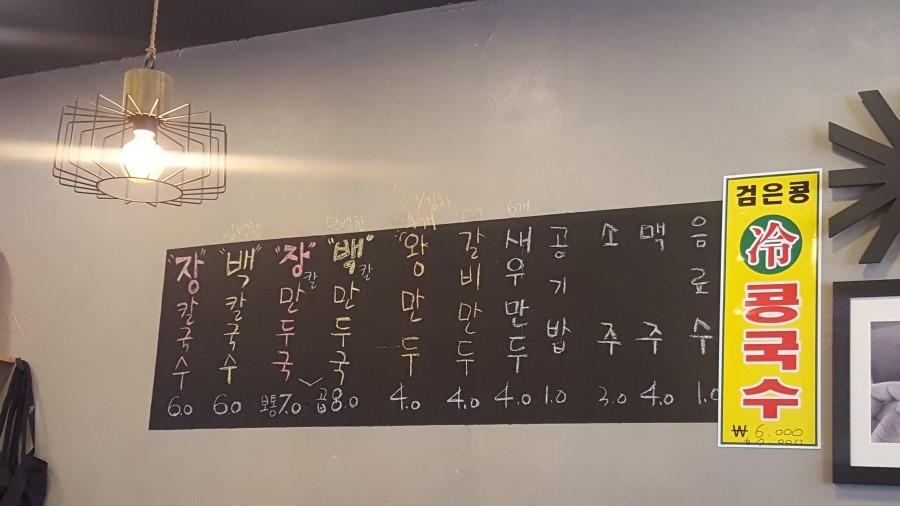 "장"칼국수 6.0
"백"칼국수 6.0
"장"칼만두국
"백"칼만두국
보통7.0 곱8.0
왕만두 4.0
갈비만두 4.0
6개
새우만두 4.0
공기밥 1.0
소주 3.0
맥주 4.0
음료수 1.0
검은콩
冷
콩국수
₩ 6.000